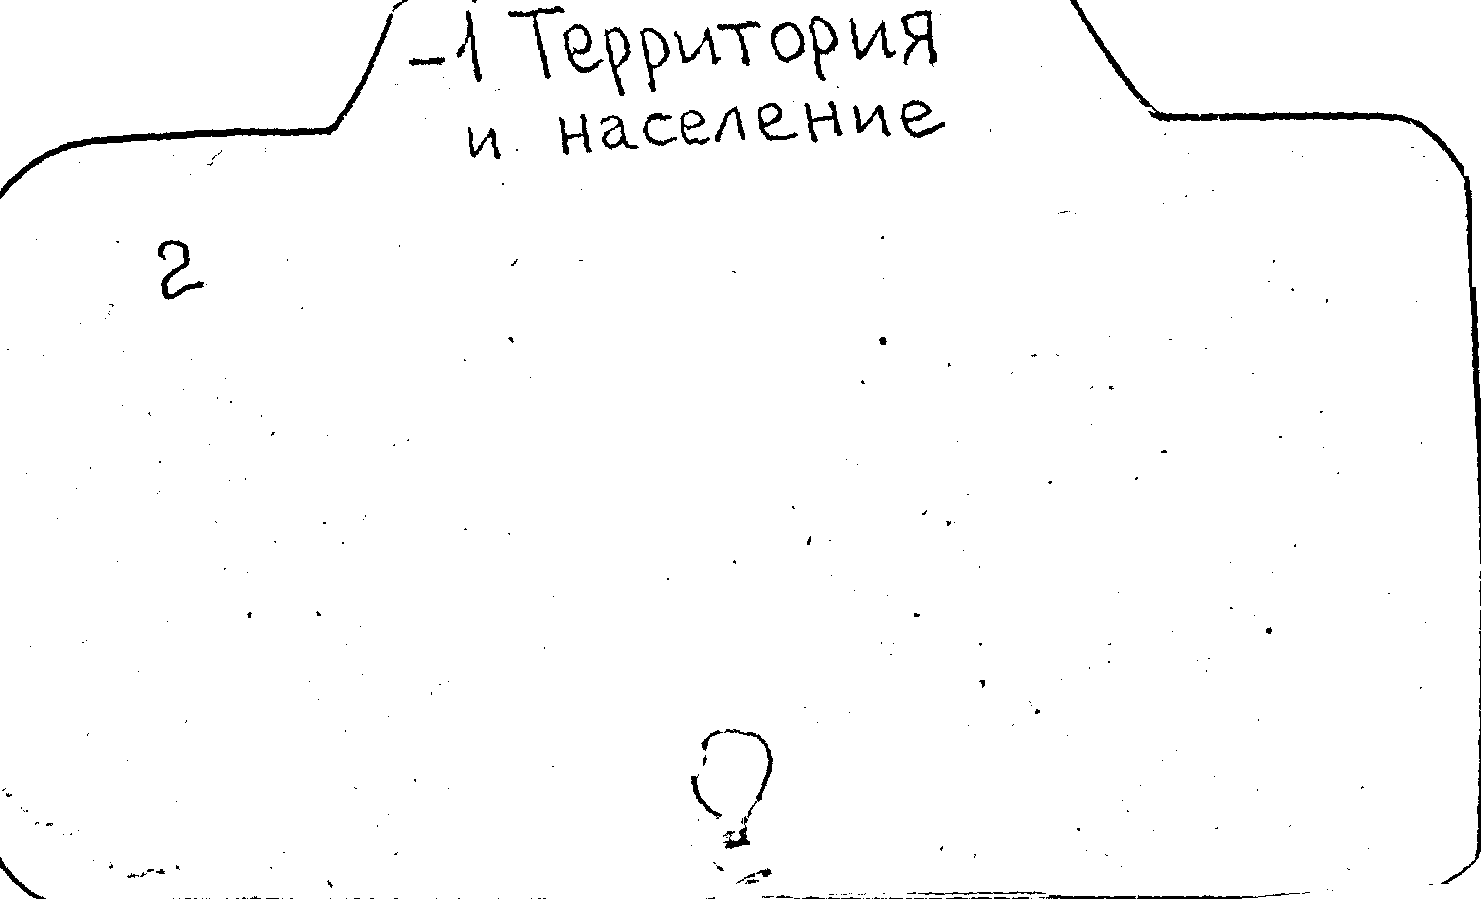 -1 Территория
и население
2